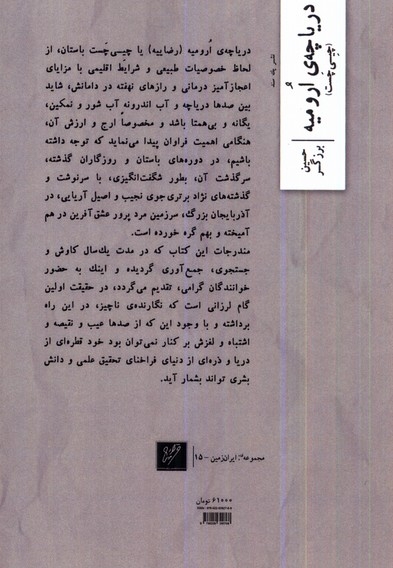 دریاچه‌ی اُرومیه
(چی‌چَست)
حسین
برزگر
دریاچه‌ی اُرومیه (رضاییه) یا چی‌سی‌چَست باستان، از
لحاظ خصوصیات طبیعی و شرایط اقلیمی با مزایای
اعجازآمیز درمانی و رازهای نهفته در دامانش، شاید
بین صدها دریاچه و آب اندرونه آب شور و نمکین،
یگانه و بی‌همتا باشد و مخصوصاً ارج و ارزش آن،
هنگامی اهمیت فراوان پیدا می‌نماید که توجه داشته
باشیم، در دوره‌های باستان و روزگاران گذشته،
سرگذشت آن، بطور شگفت‌انگیزی، با سرنوشت و
گذشته‌های نژاد برتری‌جوی نجیب و اصیل آریایی، در
آذربایجان بزرگ، سرزمین مرد پرور عشق‌آفرین در هم
آمیخته و بهم گره خورده است.
مندرجات این کتاب که در مدت یك‌سال کاوش و
جستجوی، جمع‌آوری گردیده و اینك به حضور
خوانندگان گرامی، تقدیم می‌گردد، در حقیقت اولین
گام لرزانی است که نگارنده‌ی ناچیز، در این راه
برداشته و با وجود این که از صدها عیب و نقیصه و
اشتباه و لغزش بر کنار نمی‌توان بود خود قطره‌ای از
دریا و ذره‌ای از دنیای فراخنای تحقیق علمی و دانش
بشری تواند بشمار آید.
مجموعه ایران‌زمین - ۱۵
۶۱۰۰۰ تومان